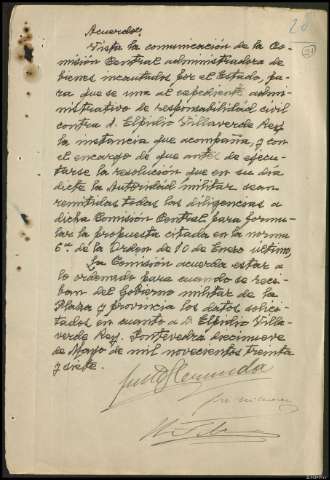 28
Acuerdos,
Vista la comunicación de la Co-
misión Central administradora de
bienes incautados por el Estado, pa-
ra que se una al expediente admi-
nistrativo de responsabilidad civil
contra d. Elpidio Villaverde Rey
la instancia que acompaña, y con
el encargo de que antes de ejecu-
tarse la resolución que en su día
dicte la autoridad militar sean
remitidas todas las diligencias a
dicha Comisión Central para formu-
lar la propuesta citada en la norma
6ª de la Orden de 10 de Enero último,
La Comisión acuerda estar a
lo ordenado para cuando se reci-
ban del Gobierno militar de la
Plaza y provincia los datos solici-
tados en cuanto a D. Elpidio Villa-
verde Rey. Pontevedra diecinueve
de Mayo de mil novecientos treinta
y siete.